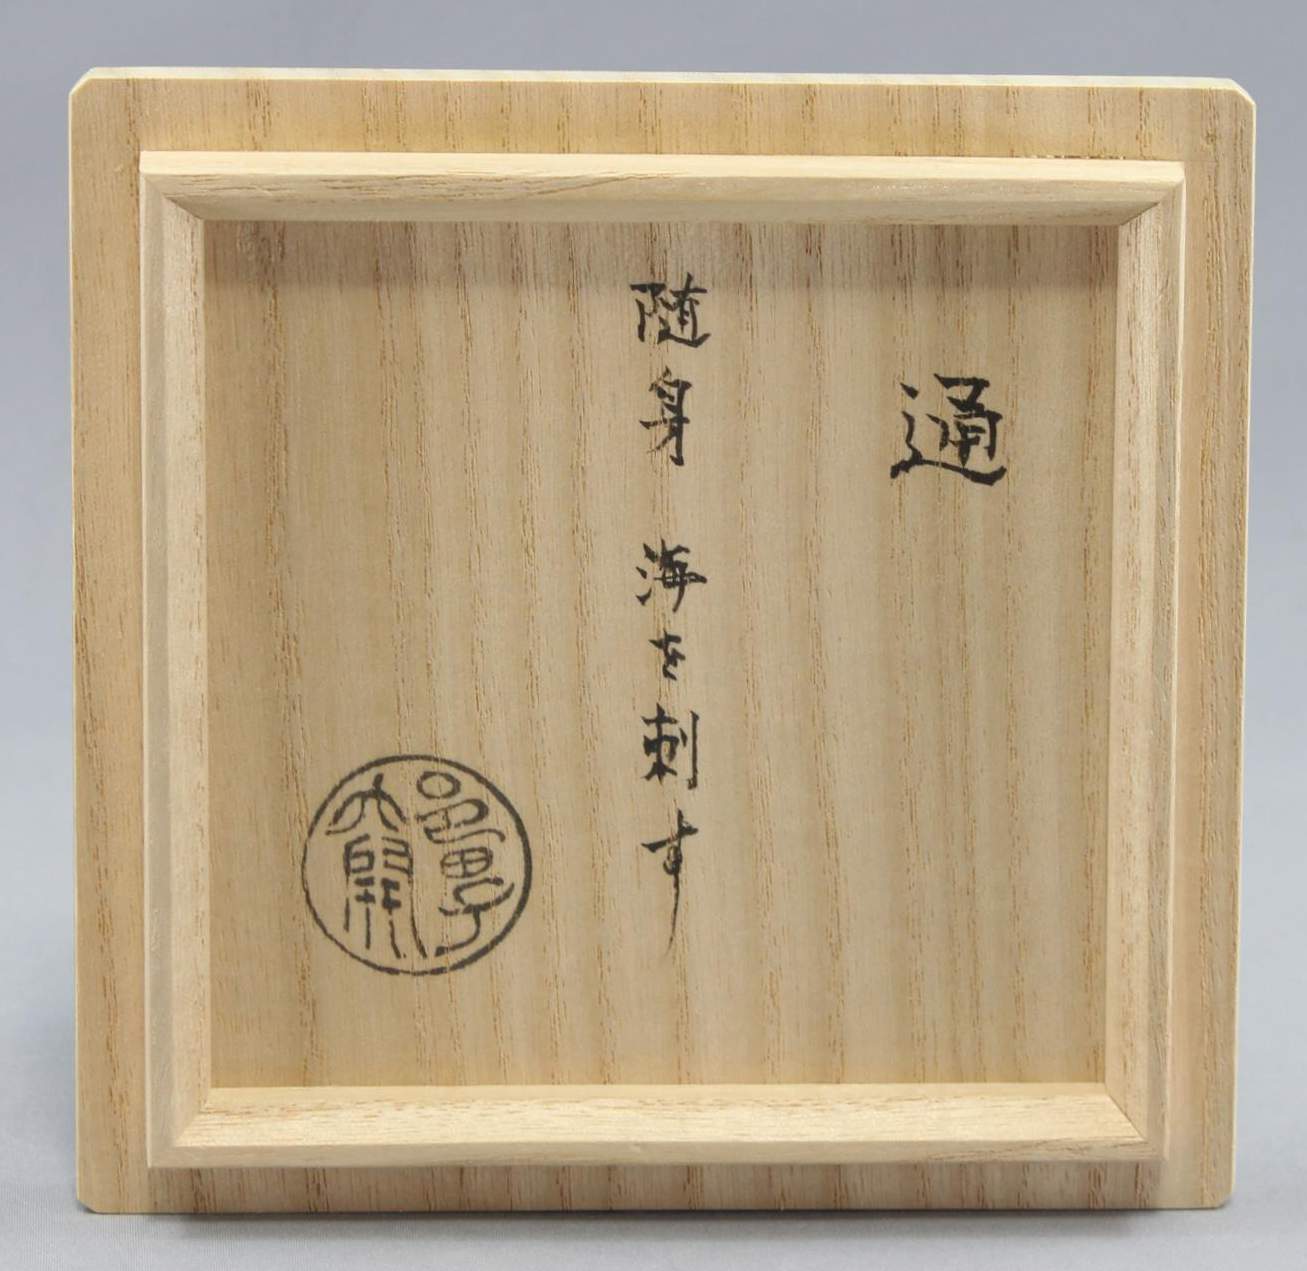 通
随身 海を刺す